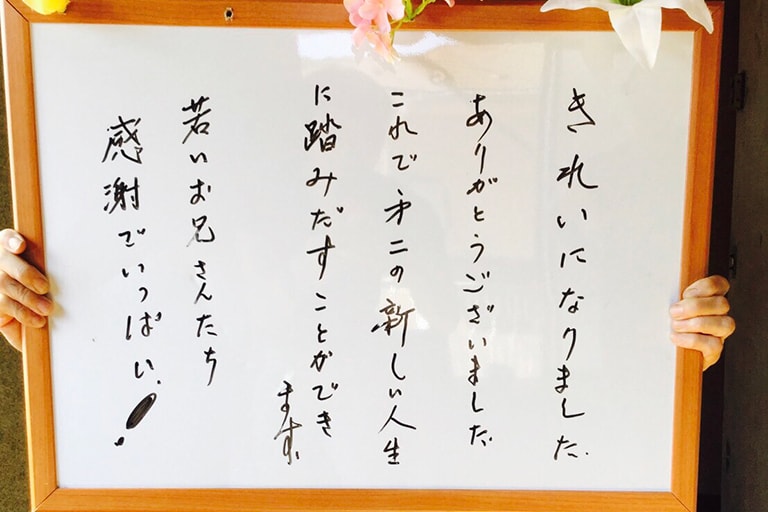 きれいになりました
ありがとうございました
これで第二の新しい人生
に踏みだすことができ
ます。
若いお兄さんたち
感謝でいっぱい!